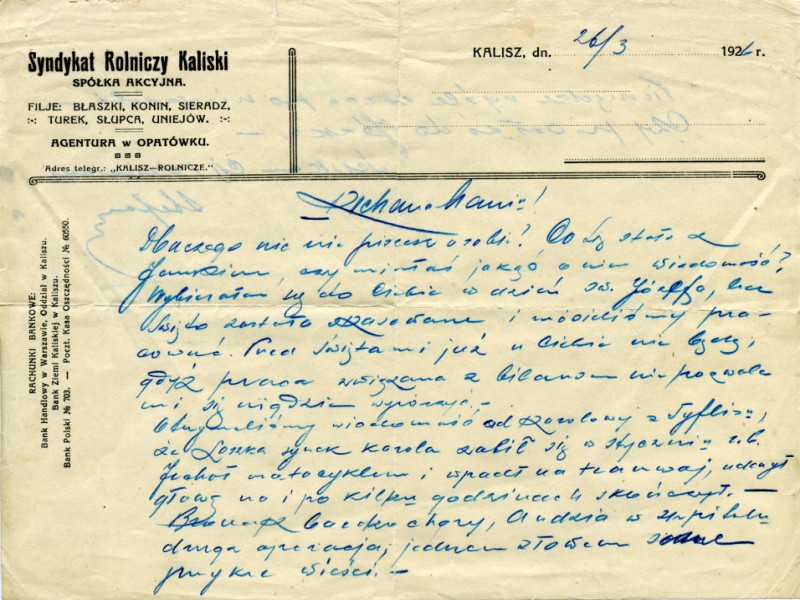 Syndykat Rolniczy Kaliski
SPÓŁKA AKCYJNA.
FILJE: BŁASZKI, KONIN, SIERADZ,
TUREK, SŁUPCA, UNIEJÓW.
AGENTURA w OPATÓWKU.
Adres telegr.: „KALISZ—ROLNICZE."
KALISZ, dn. 26/3 192 r.
RACHUNKI BANKOWE:
Bank Handlowy w Warszawie, Oddział w Kaliszu.
Bank Ziemi Kaliskiej w Kaliszu.
Bank Polski № 703. — Poczt. Kasa Oszczędności № 60550.
Dlaczego nic nie piszesz o sobie? Co się stało z
Jankiem, czy miałaś jakąś o nim wiadomość?
Wybierałem się do Ciebie w dzień św. Józefa, lecz
święto zostało skasowane i musieliśmy pra-
cować. Przed świętami już u Ciebie nie będę,
gdyż praca związana z bilansem nie pozwala
mi się nigdzie wyruszyć.
Otrzymaliśmy wiadomość od Karolowej z Tyflisu,
że synek Karola zabił się w styczniu r.b.
Jechał motocyklem i wpadł na tramwaj, uderzył
głową no i po kilku godzinach skończył. —
bardzo chory, Andzia w szpitalu
druga operacja, jednem słowem same
przykre wieści. —